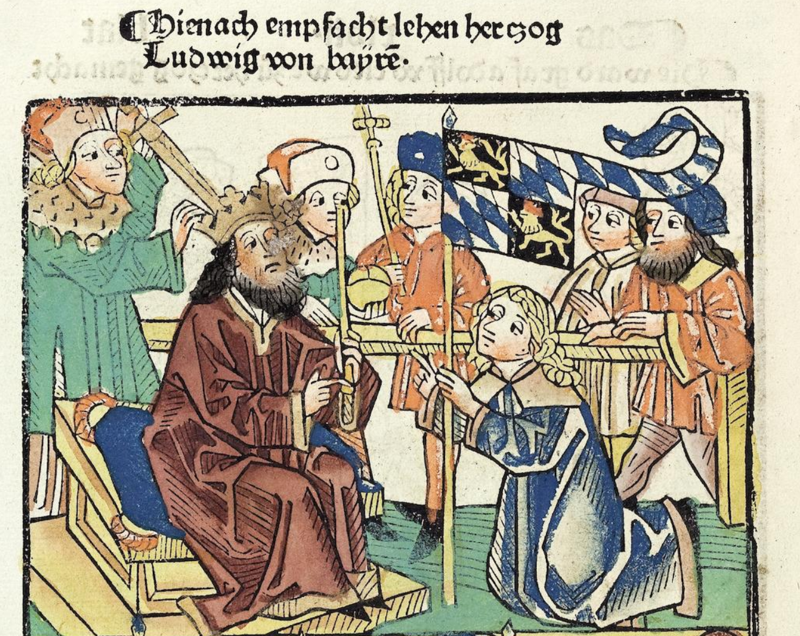 Hienach empfacht lehen herczog
Ludwig von bayrē.